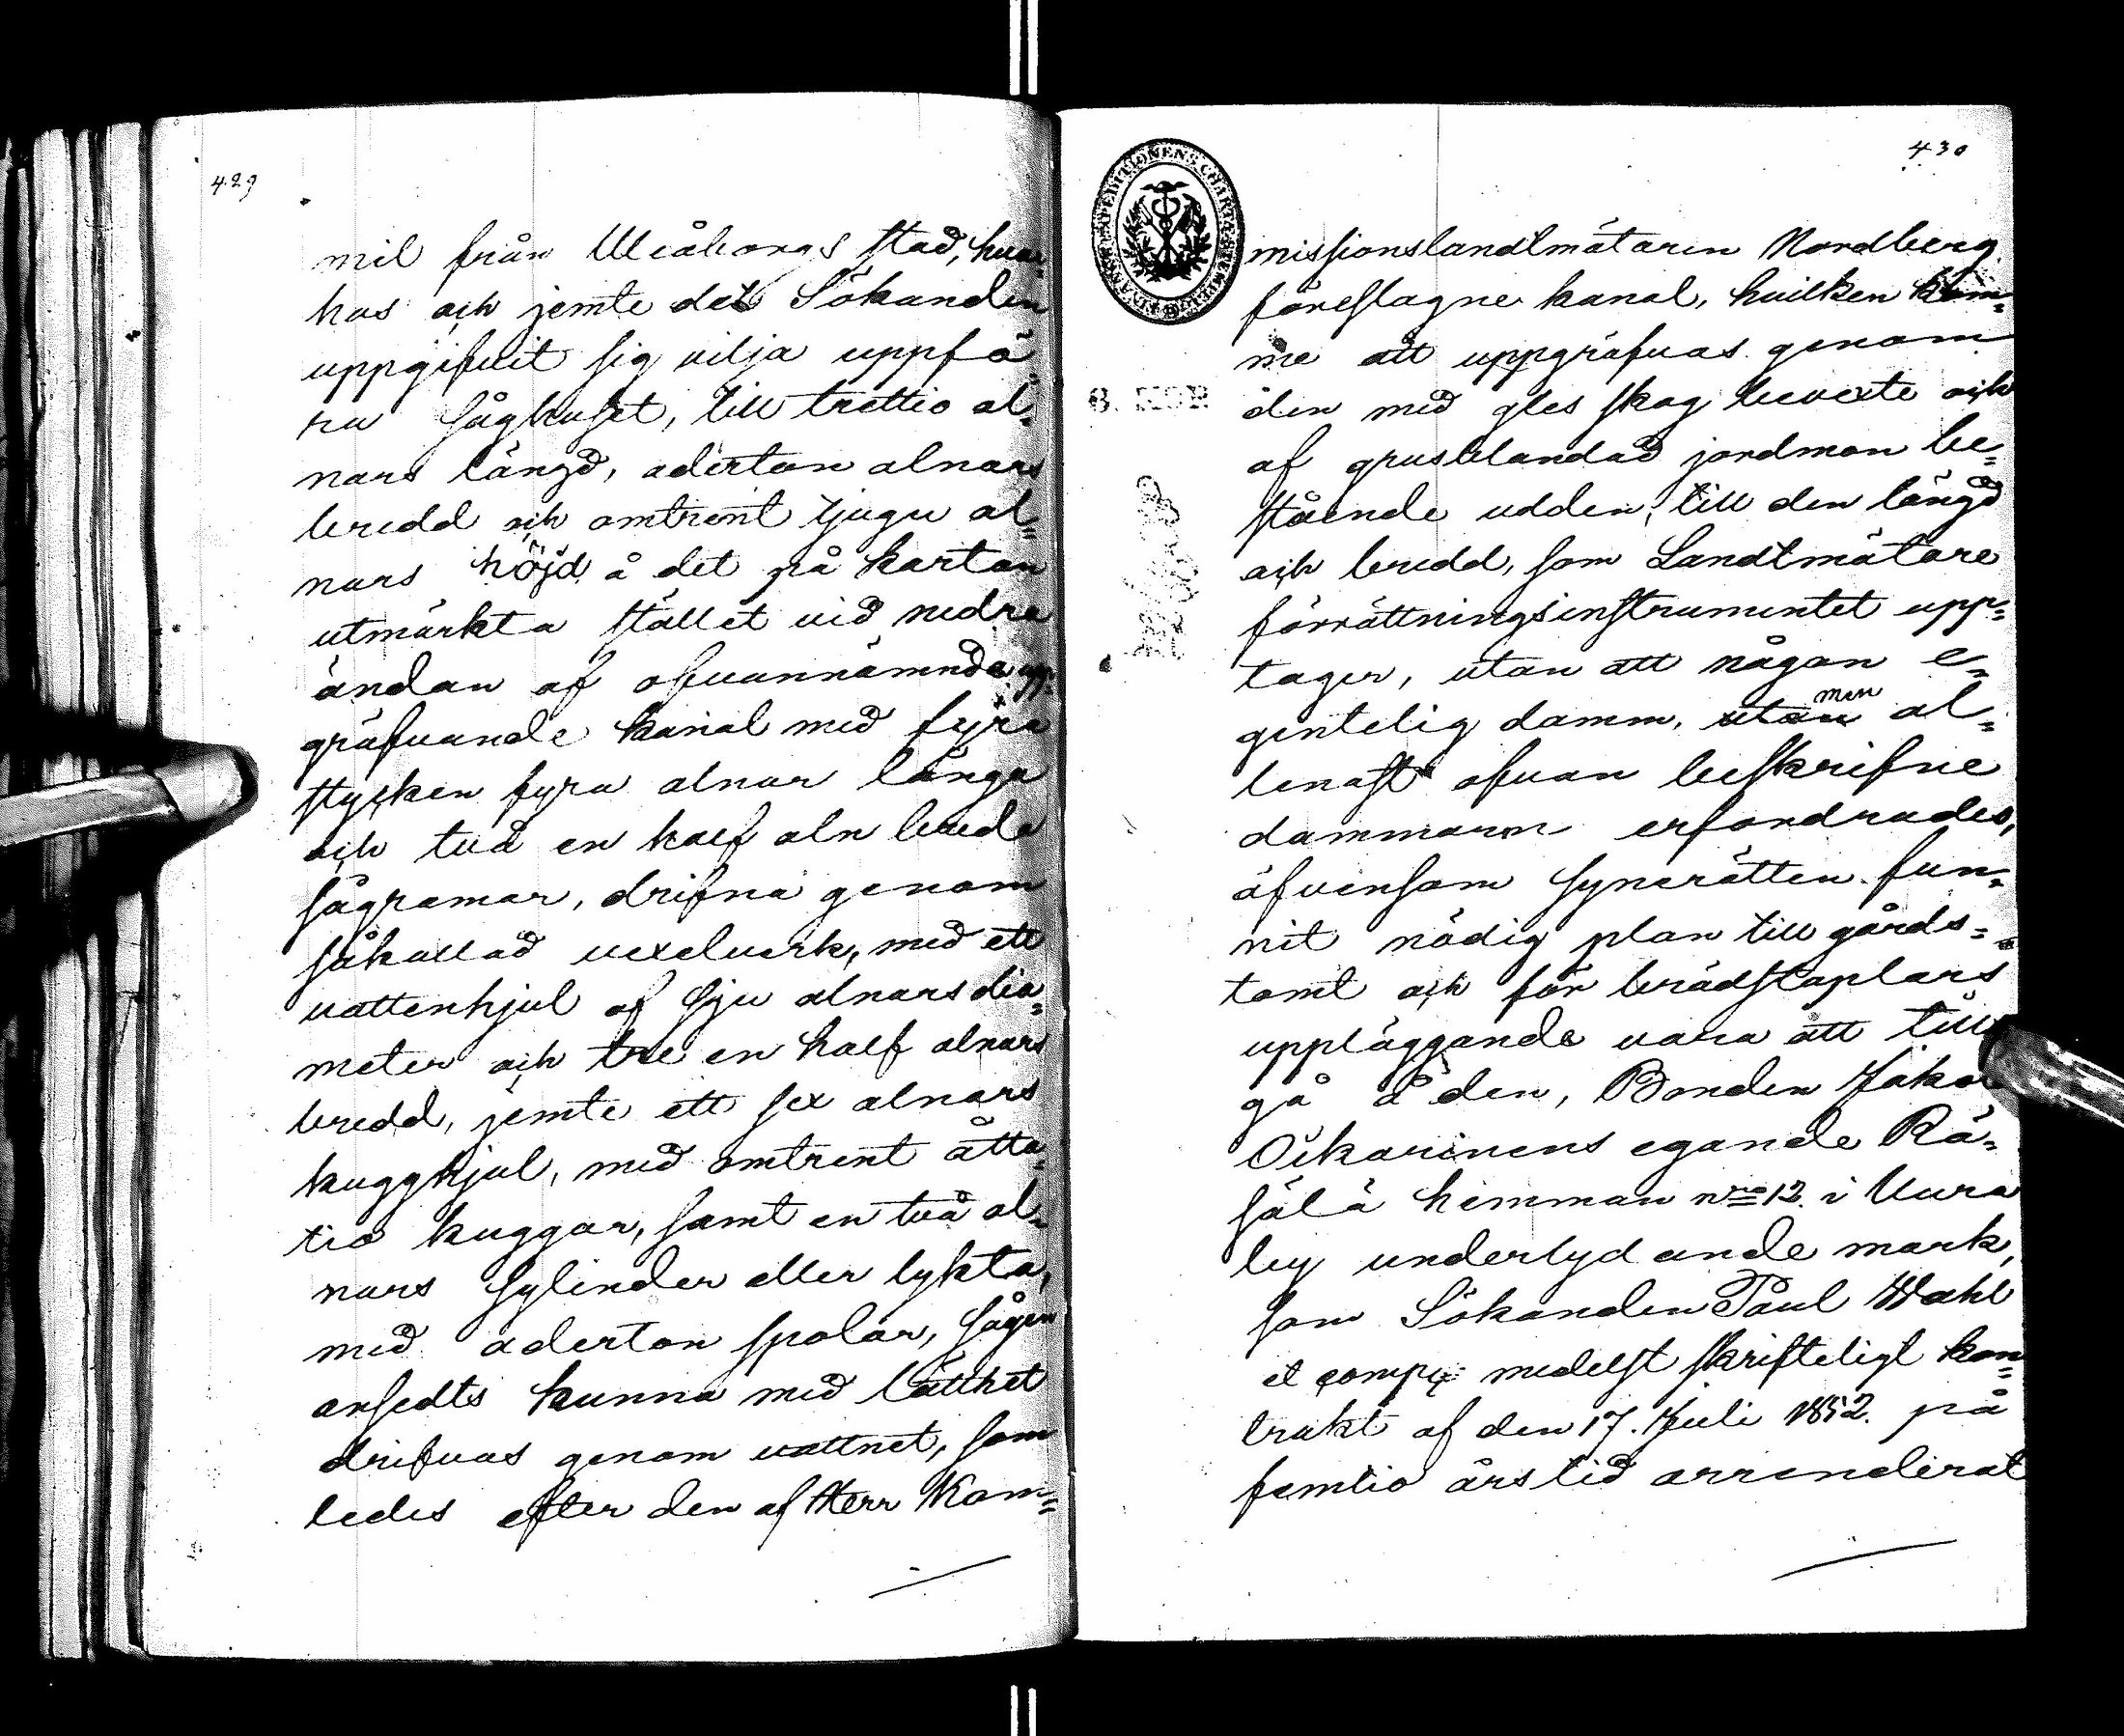 429
mil från Uleåborgs stad, hvar=
hos och jemte det Sökanden
uppgifvit sig vilja uppfö=
ra såghuset, till trettio al=
nars längd, aderton alnars
bredd och omtrent tjugu al=
nars höjd, å det på kartan
utmärkta stället vid nedra
ändan af ofvannämnda upp=
gräfvande kanal med fyra
stycken fyra alnar långa
och två en half aln breda
sågramar, drifna genom
såkallad vexelverk, med ett
vattenhjul af sju alnars dia=
meter och tre en half alnars
bredd, jemte ett sex alnars
kugghjul, med omtrent åtta=
tio kuggar, samt en två al=
nars sylinder eller lykta,
med aderton spolar, sågen
ansedts kunna med lätthet
drifvas genom vattnet, som
ledes efter den af Herr Kom=
430
missionslandtmätaren Nordberg
föreslagne kanal, hvilken kom=
me att uppgräfvas genom
den med gles skog bevexte och
af grusblandad jordmon be=
stående udden, till den längd
och bredd, som Landtmätare
förrättningsinstrumentet upp=
tager, utan att någon e=
gentelig damm, utan men al=
lenast ofvan beskrifne
dammarm erfordrades,
äfvensom Synerätten fun=
nit nödig plan till gårds=
tomt och för brädstaplars
uppläggande vara att till
gå å den, Bonden Jakob
Oikarinens egande Rä=
sälä hemman nro 12. i Uura
by underlydande mark,
som Sökanden Paul Wahl
et comp: medelst skrifteligt kon=
trakt af den 17. Juli 1852. på
femtio års tid arrenderat